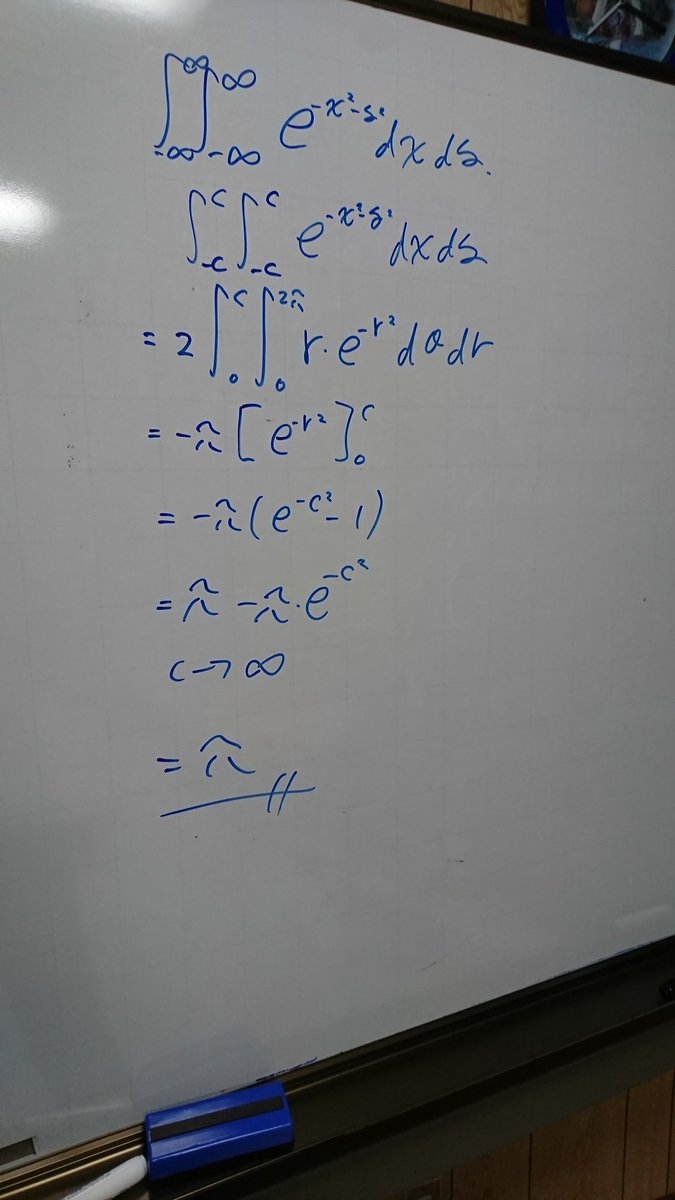 ∫_{-∞}^{∞}∫_{-∞}^{∞} e^{-x²-y²} dx dy.
∫_{-c}^{c}∫_{-c}^{c} e^{-x²-y²} dx dy
= 2∫_{0}^{c}∫_{0}^{2π} r·e^{-r²} dθ dr
= -π[e^{-r²}]_{0}^{c}
= -π(e^{-c²}-1)
= π -π·e^{-c²}
c→∞
= π